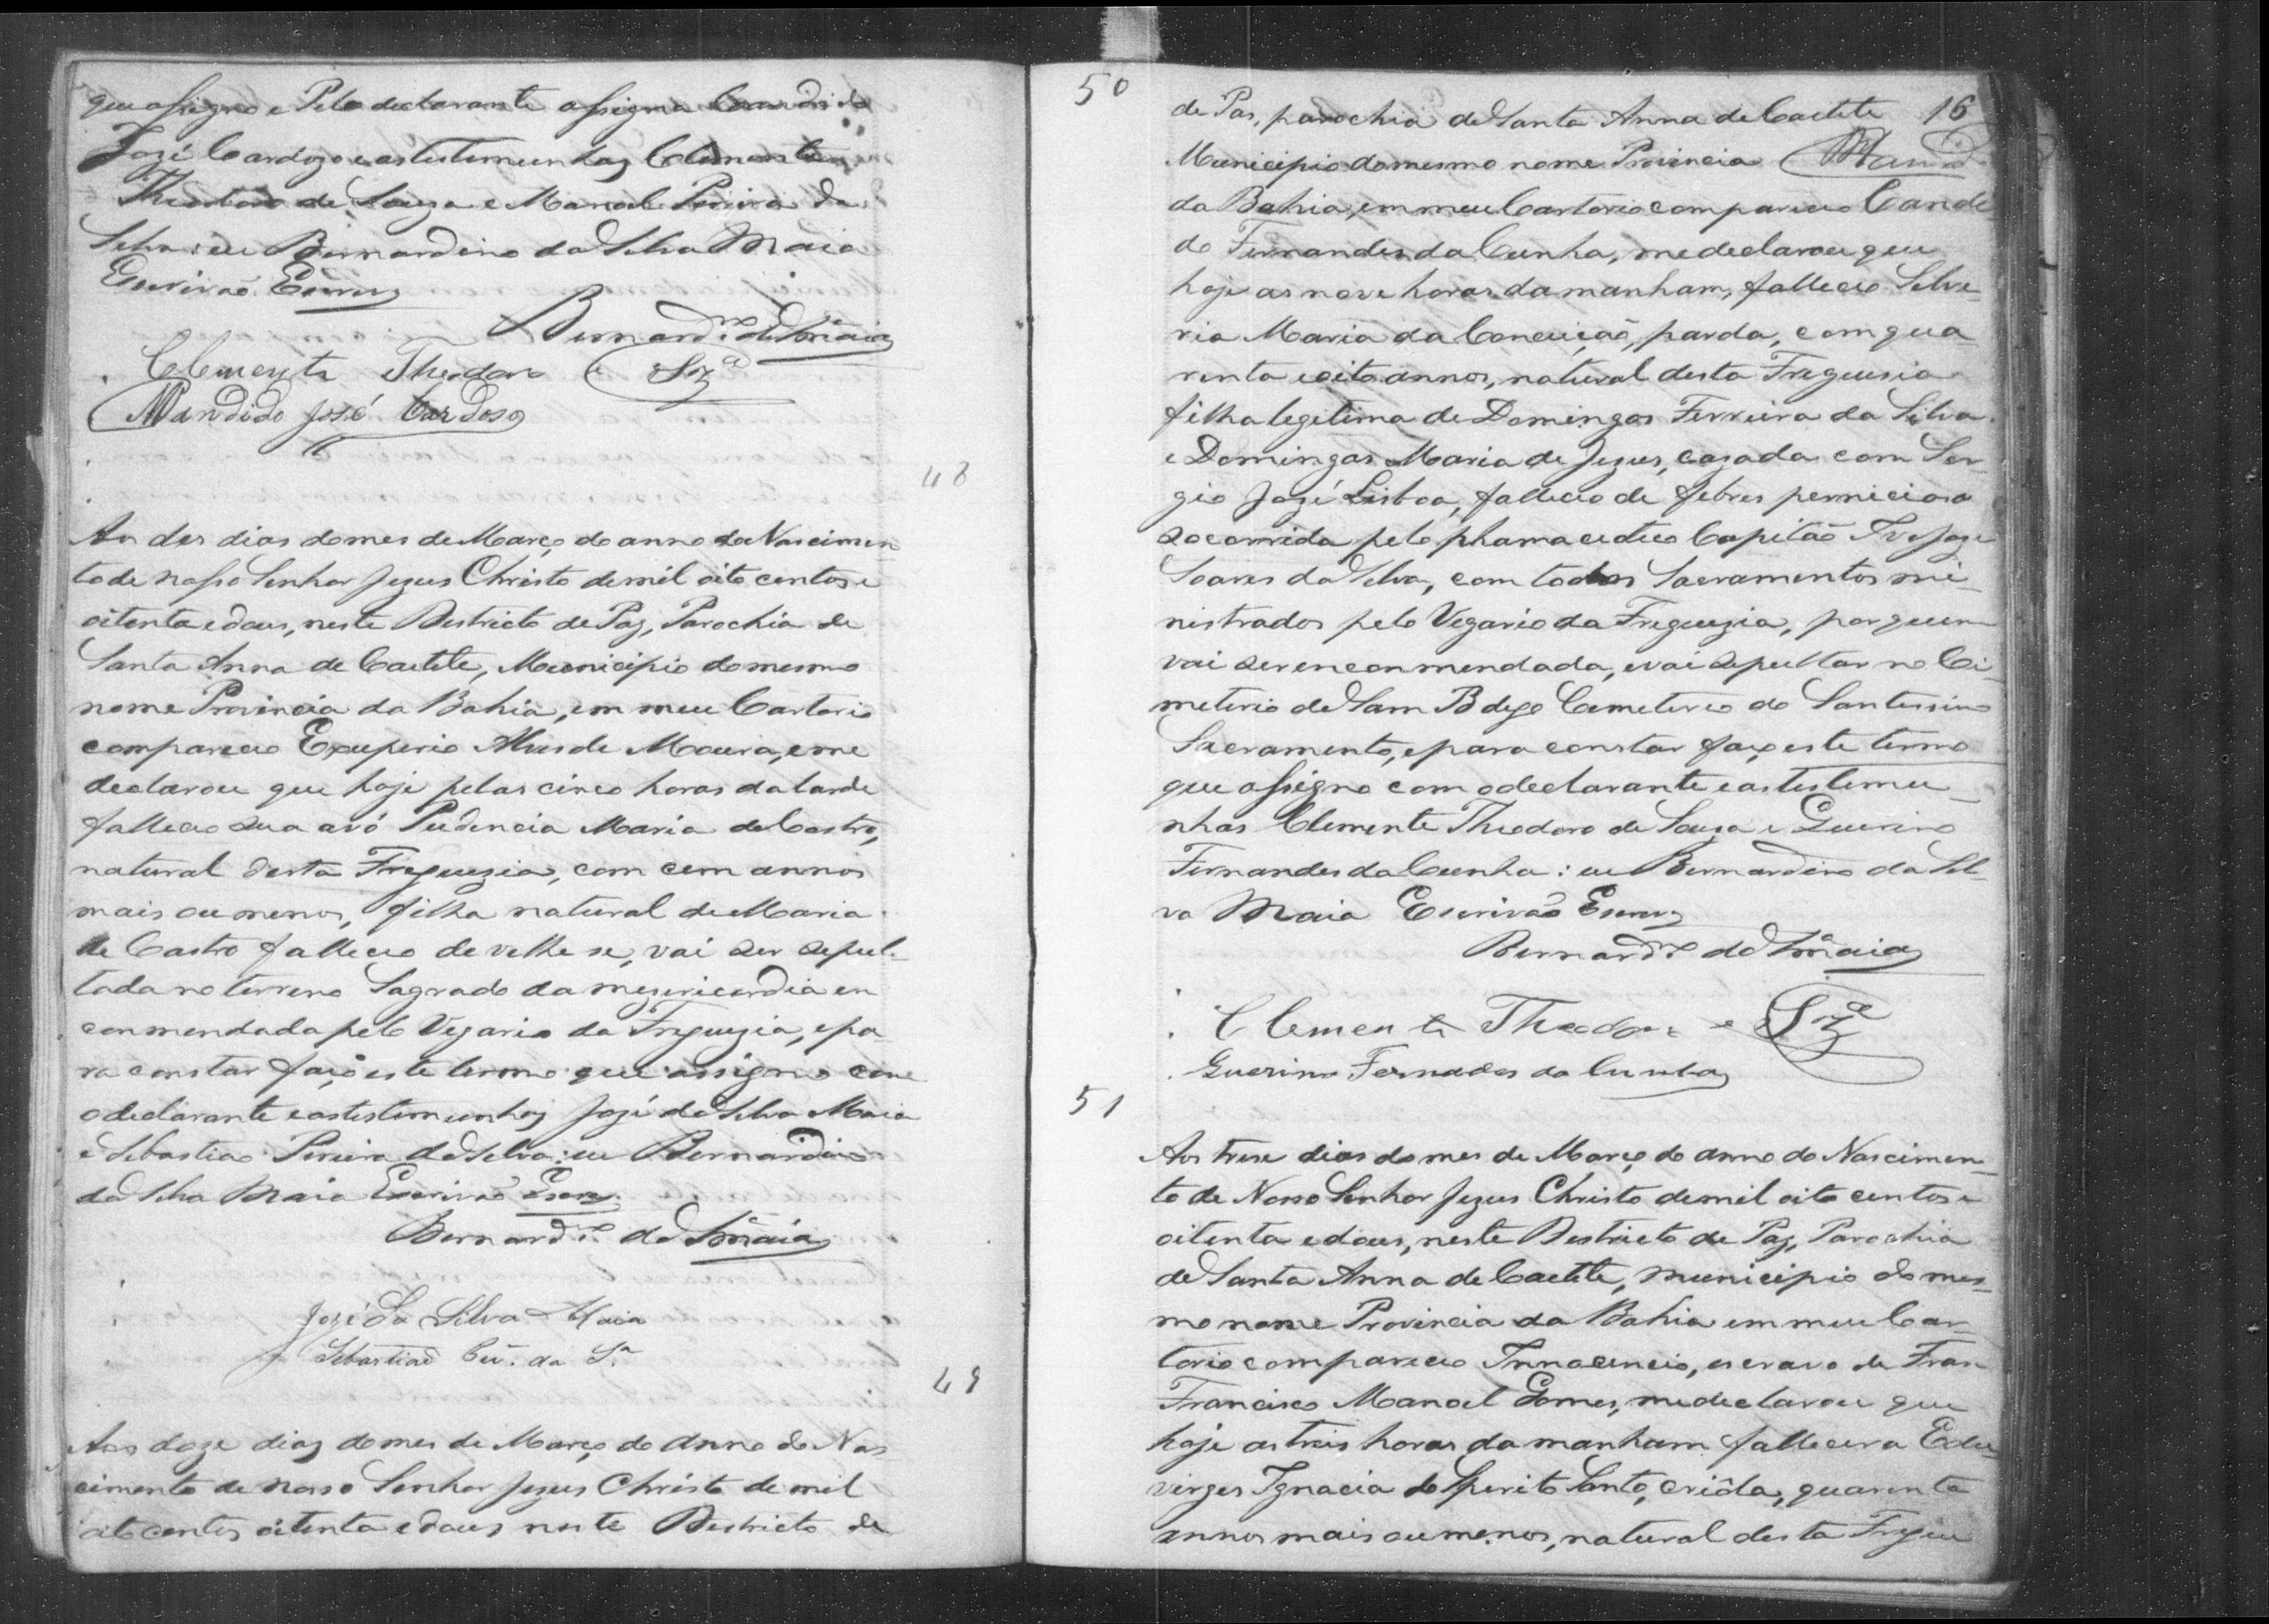 que assigno e Pelo declarante assigna Candido
José Cardozo e as testemunhas Clemente
Theodoro de Souza e Manoel Pereira da
Silva: eu Bernardino da Silva Maia
Escrivão Escrevy
Bernard.no da S.a Maia
Clemente Theodoro e Sz.a
Mandido José Cardoso
48
Aos des dias do mes de Março do anno do Nascimen
to de nosso Senhor Jezus Christo de mil oito centos e
oitenta e dous, neste Destricto de Paz, Parochia de
Santa Anna de Caetete, Municipio do mesmo
nome Provincia da Bahia, em meu Cartorio
compareceo Exuperio Alves de Moura, e me
declarou que hoje pelas cinco horas da tarde
falleceo sua avó Pudencia Maria de Castro,
natural desta Freguezia, com cem annos
mais ou menos, filha natural de Maria
de Castro falleceo de velhe se, vai ser sepul-
tada no terreno Sagrado da mezericordia en
conmendada pelo Vegario da Freguezia, e pa
ra constar faço este termo que assigno com
o declarante e as testemunhas José da Silva Maia
e Sebastiao Pereira da Silva: eu Bernardino
da Silva Maia Escrivão Escrevy
Bernard.no da S.a Maia
José Da Silva Maia
Sebastiaõ da S.a
49
Aos doze dias do mes de Março do Anno do Nas
cimento de nosso Senhor Jezus Christo de mil
oito centos oitenta e dous neste Destricto de
50
de Pas, parochia de Santa Anna de Caetete 16
Municipio do mesmo nome Provincia
da Bahia, em meu Cartorio compareceo Candi
do Fernandes da Cunha, me declarou que
hoje as nove horas da manham, falleceo Silve-
ria Maria da Conceição, parda, com qua
renta e oito annos, natural desta Freguesia
filha legitima de Domingos Ferreira da Silva
e Domingas Maria de Jezus, cazada com Ser-
gio José Lisboa, falleceo de febres perniciosa
socorrida pelo phamacedico Capitão José
Soares da Silva, com todos Sacramentos mi-
nistrados pelo Vegario da Freguezia, por quem
vai ser enconmendada, e vai sepultar no Ci-
meterio de Sam B digo Cemeterio do Santissimo
Sacramento, e para constar faço este termo
que assigno com o declarante e as testemu-
nhas Clemente Theodoro de Souza e Guerino
Fernandes da Cunha: eu Bernardino da Sil-
va Maia Escrivão Escrevy
Bernard.no da S.a Maia
Clemente Theodoro e Sz.a
Guerino Fernades da Cunha
51
Aos trese dias do mes de Março do anno do Nascimen-
to de Nosso Senhor Jezus Christo de mil oito centos e
oitenta e dous, neste Destricto de Paz, Parochia
de Santa Anna de Caetete, municipio do mes-
mo nome Provincia da Bahia em meu Car-
torio compareceo Innocencio, escravo de Fran
Francisco Manoel Gomes, me declarou que
hoje as treis horas da manham fallecera Edu-
virges Ignacia do Sperito Santo, criôla, quarenta
annos mais ou menos, natural desta Fregue